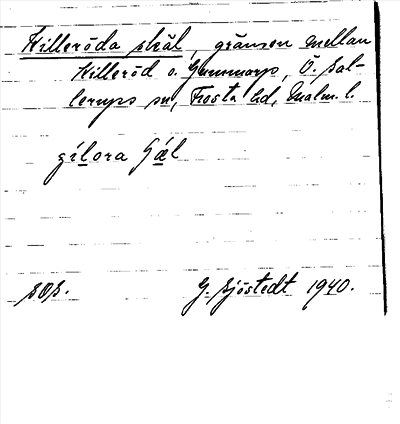 Killeröda skäl, gränsen mellan
Killeröd o. Gummarp, Ö. Sal-
lerups sn, Frosta hd, Malm. l.
gílora
SOS. G. Sjöstedt 1940.